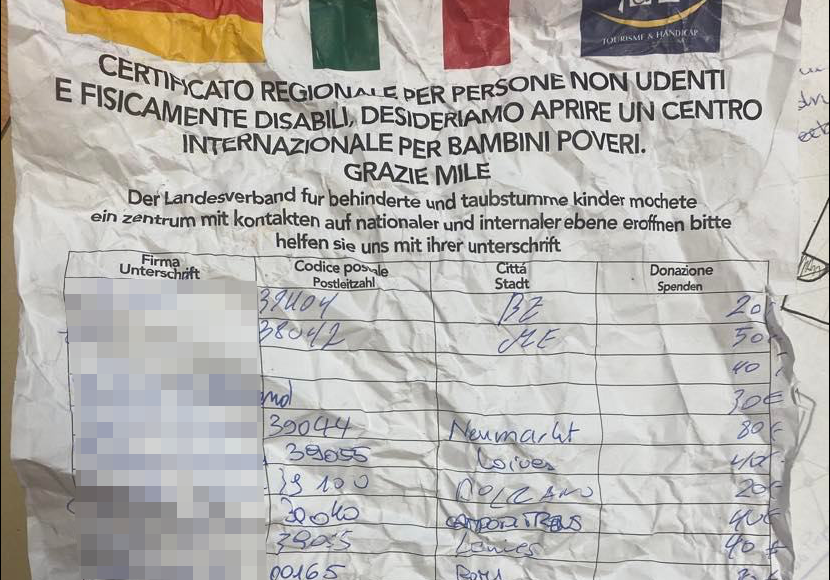 TOURISME & HANDICAP
CERTIFICATO REGIONALE PER PERSONE NON UDENTI
E FISICAMENTE DISABILI, DESIDERIAMO APRIRE UN CENTRO
INTERNAZIONALE PER BAMBINI POVERI.
GRAZIE MILE
Der Landesverband fur behinderte und taubstumme kinder mochete
ein zentrum mit kontakten auf nationaler und internaler ebene eroffnen bitte
helfen sie uns mit ihrer unterschrift
Firma Codice postale Cittá Donazione
Unterschrift Postleitzahl Stadt Spenden
39404 BZ 20€
38042 ME 50€
40€
30€
39044 Neumarkt 80€
39055 40€
39100 BOLZANO 20€
40€
39055 Laives 40€
00165